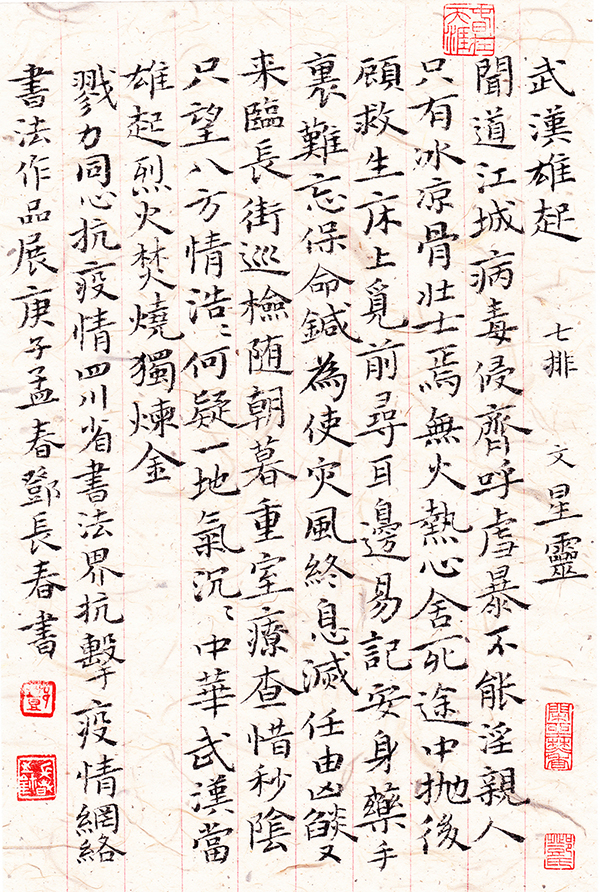 武漢雄起 七排 文星靈
聞道江城病毒侵齊呼虐暴不能淫親人
只有冰凉骨壯士焉無火熱心舍死途中拋後
顧救生床上覓前尋耳邊易記安身藥手
裏難忘保命鍼為使灾風終息滅任由凶燄又
来臨長街巡檢随朝暮重室療查惜秒陰
只望八方情浩〻何疑一地氣沉〻中華武漢當
雄起烈火焚燒獨煉金
戮力同心抗疫情四川省書法界抗擊疫情網絡
書法作品展庚子孟春鄧長春書